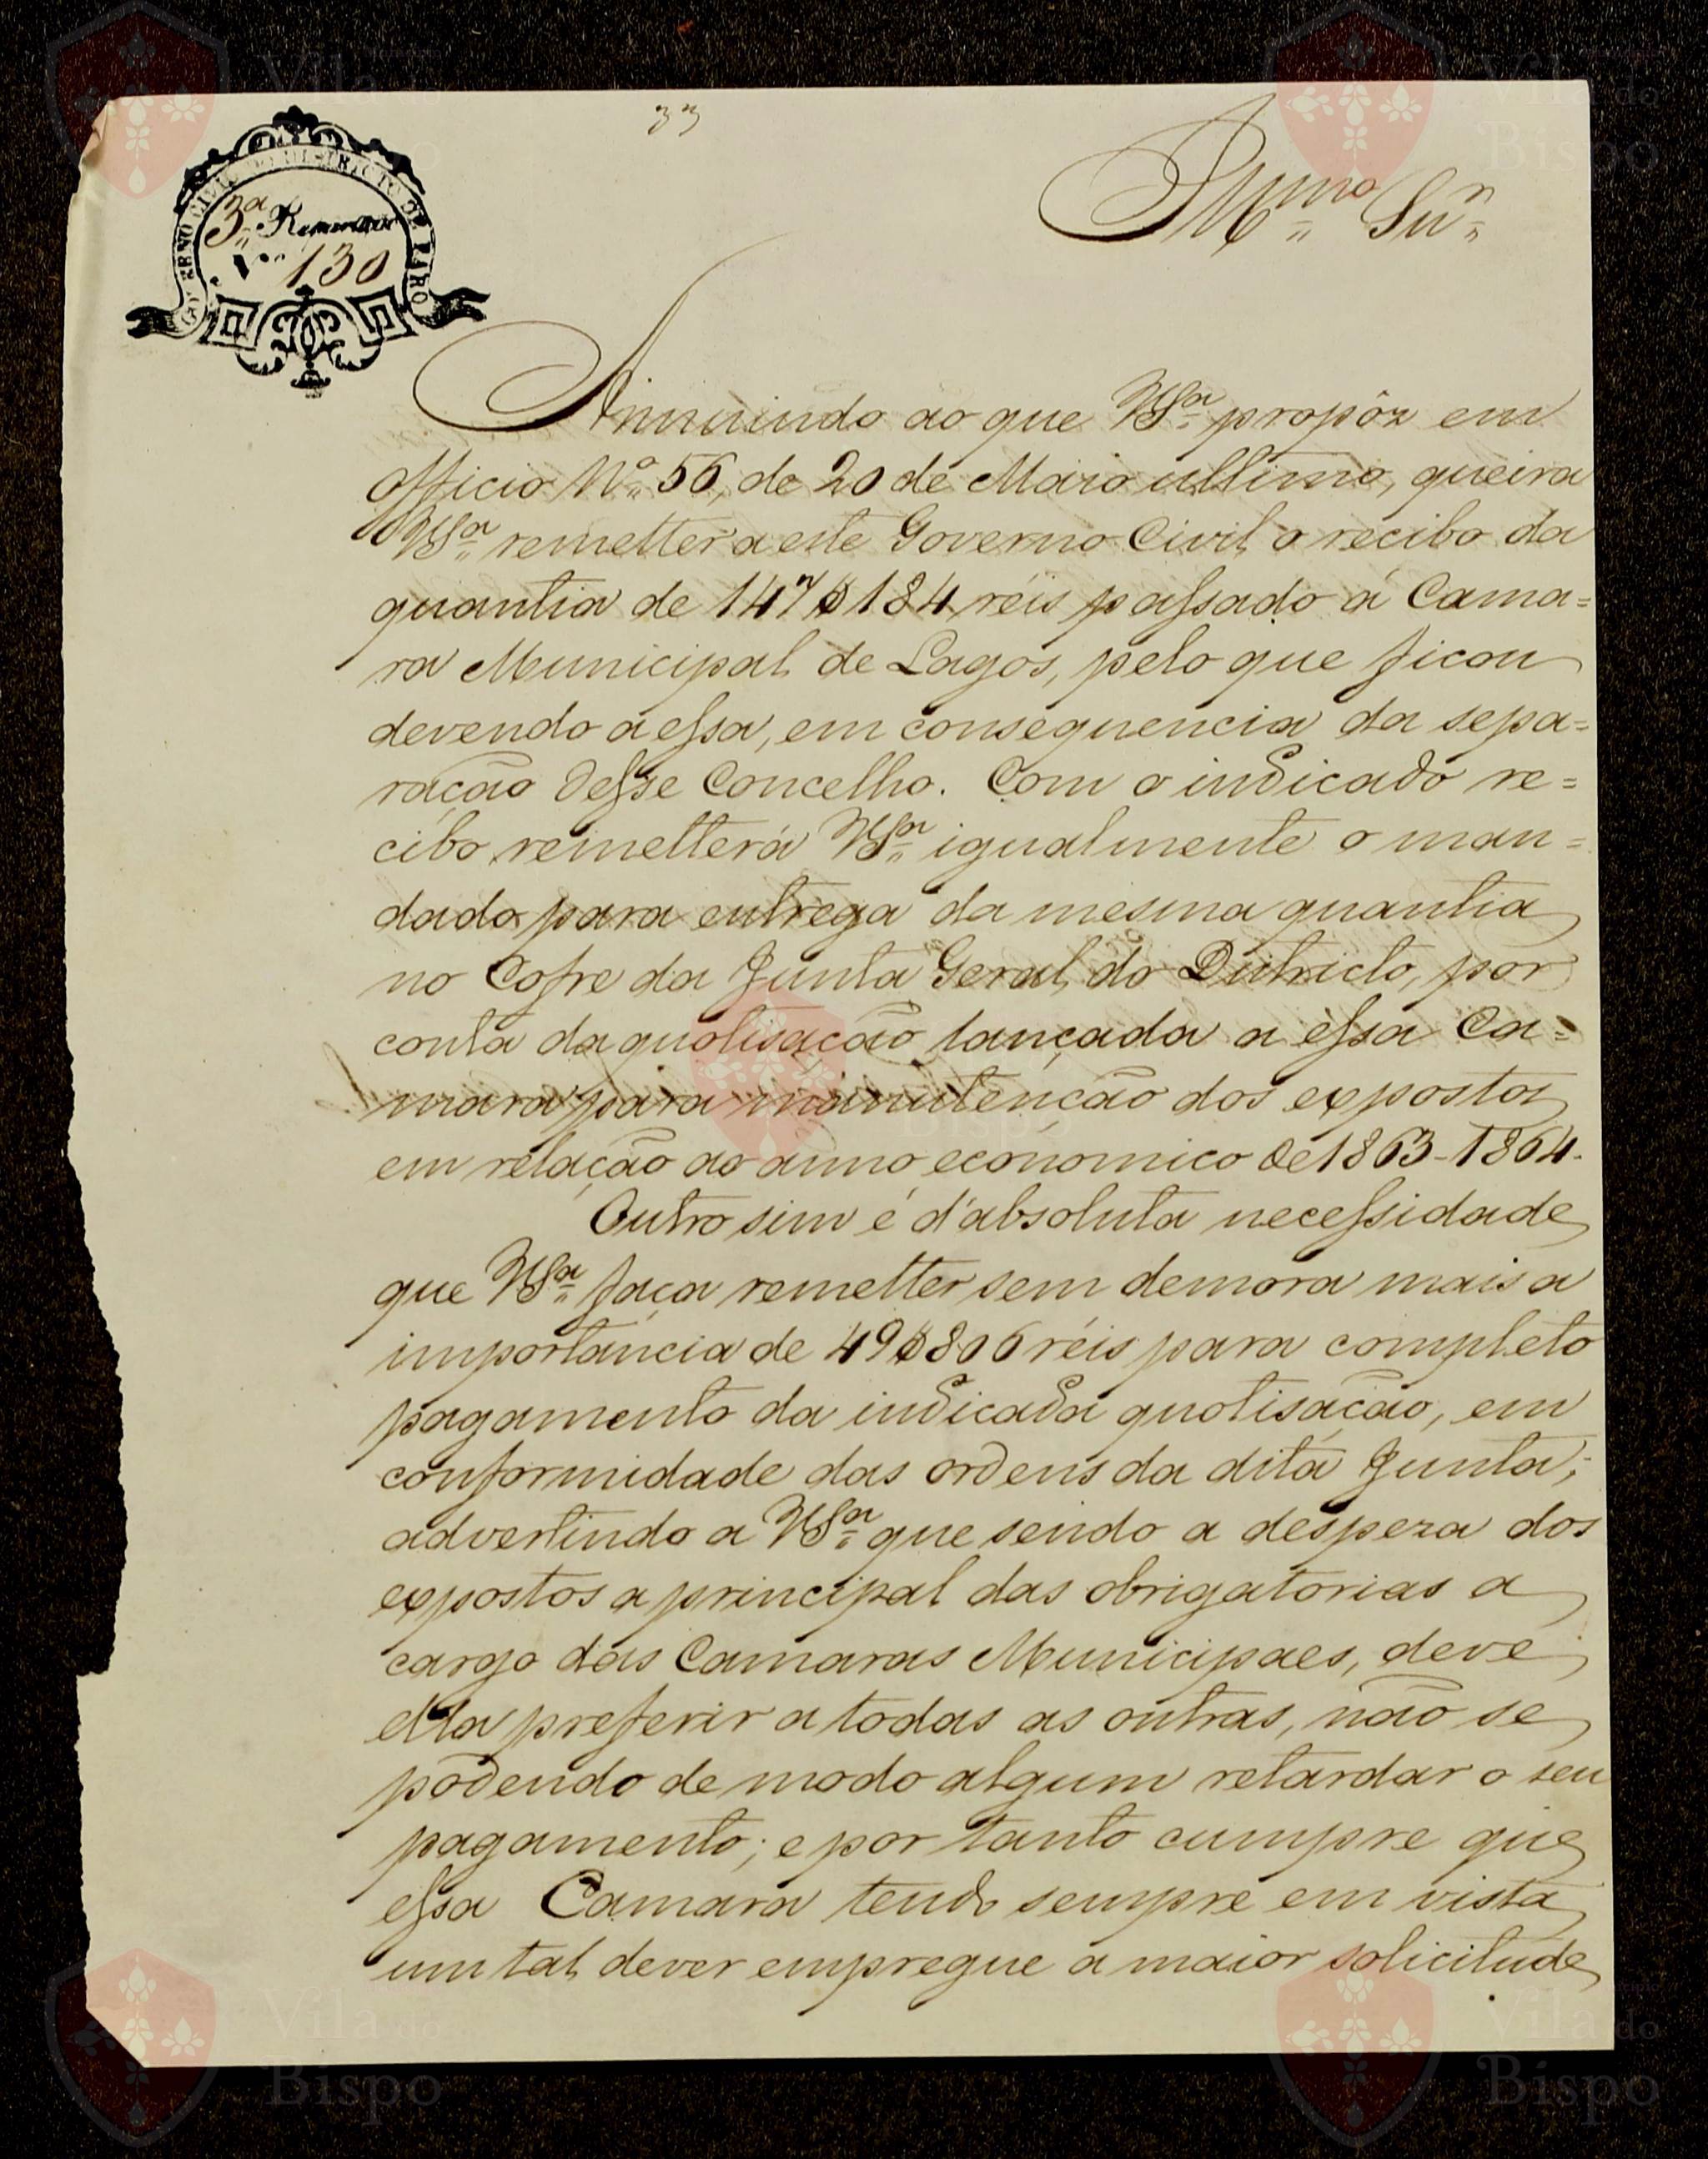 33
GOVERNO CIVIL DO DISTRICTO DE FARO
3.ª Repartição
N.º 130
Ill.mo Snr.
Annuindo ao que V.Sª propôz em
officio N.º 56, de 20 de Maio ultimo, queira
V.Sª remetter a este Governo Civil o recibo da
quantia de 147$184 réis passado á Cama=
ra Municipal de Lagos, pelo que ficou
devendo a essa, em consequencia da sepa=
ração desse Concelho. Com o indicado re=
cibo remetterá V.Sª igualmente o man=
dado para entrega da mesma quantia
no Cofre da Junta Geral do Districto, por
conta da quotisação lançada a essa Ca=
mara para manutenção dos expostos
em relação ao anno economico de 1863-1864.
Outro sim é d'absoluta necessidade
que V.Sª faça remetter sem demora mais a
importancia de 49$806 réis para completo
pagamento da indicada quotisação, em
conformidade das ordens da dita Junta;
advertindo a V.Sª que sendo a despeza dos
expostos a principal das obrigatorias a
cargo das Camaras Municipaes, deve
ella preferir a todas as outras, não se
podendo de modo algum retardar o seu
pagamento; e por tanto cumpre que
essa Camara tendo sempre em vista
um tal dever empregue a maior solicitude
Vila do
Bispo